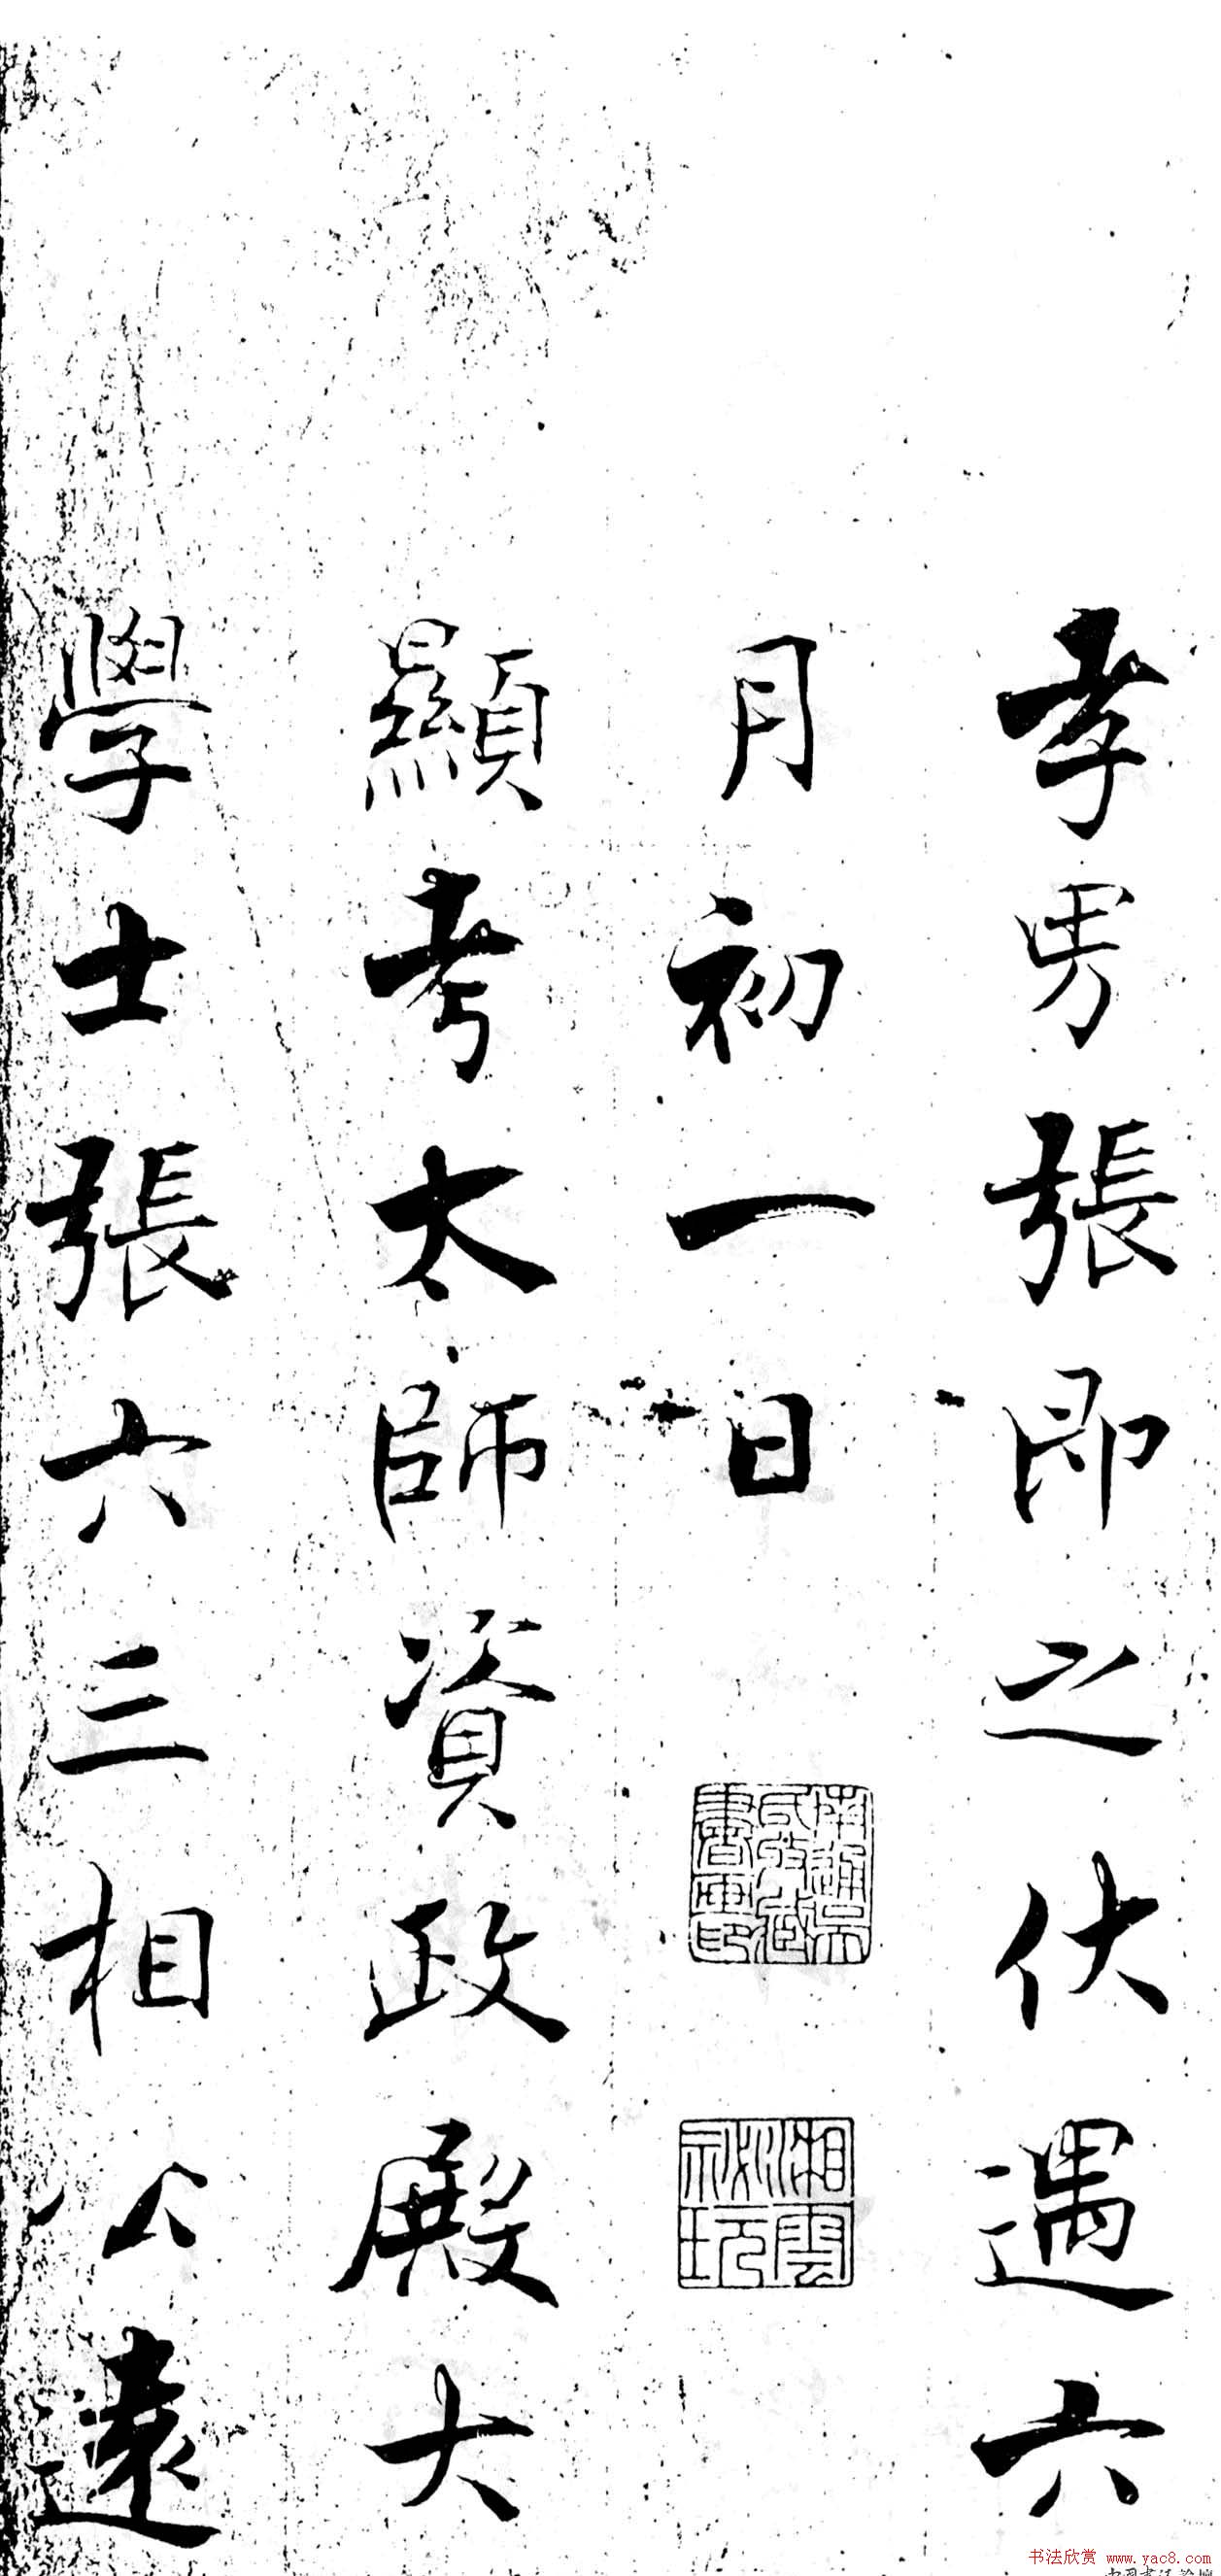 孝男張即之伏遇六
月初一日
顯考太師資政殿大
學士張六三相公遠
湘雲秘玩
书法欣赏 www.yac8.com